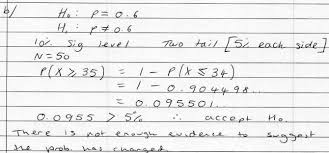 b/ H₀: P = 0.6
H₁: P ≠ 0.6
10% Sig level Two tail [5% each side]
N = 50
P(X ≥ 35) = 1 - P(X ≤ 34)
= 1 - 0.904498..
= 0.095501..
0.0955 > 5% ∴ accept H₀.
There is not enough evidence to suggest
the prob. has changed.